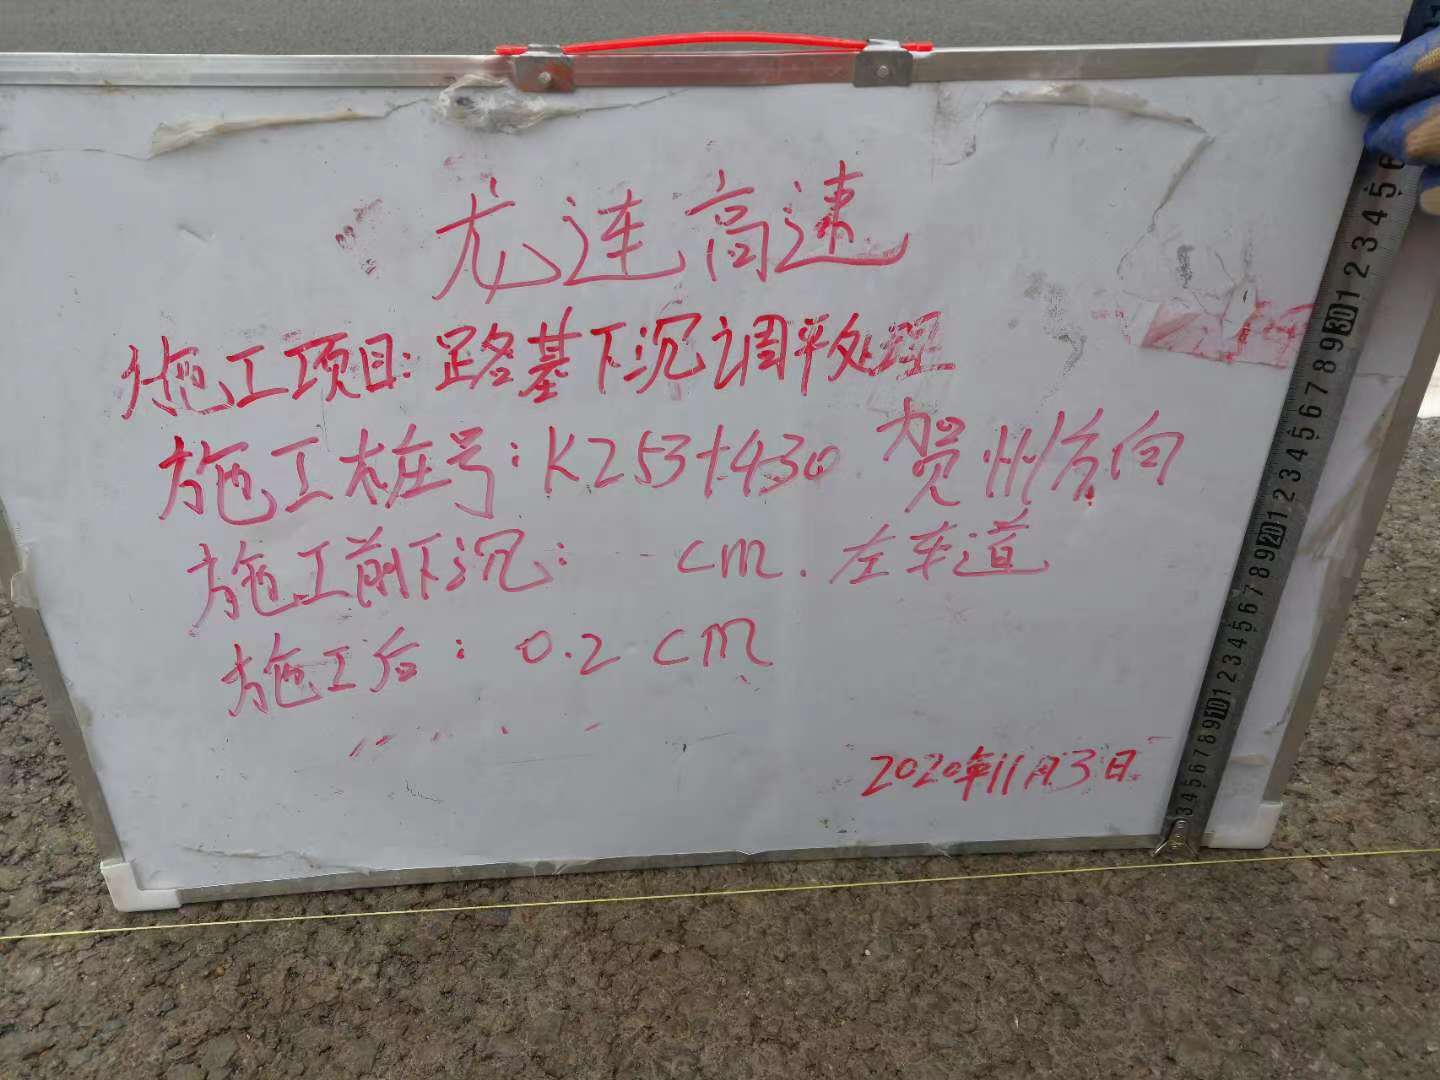 龙连高速
施工项目:路基下沉调平处理
施工桩号:K253+430 贺州方向
施工前下沉: cm.左车道
施工后:0.2cm
2020年11月3日
6
5
4
3
2
1
30
9
8
7
6
5
4
3
2
1
20
9
8
7
6
5
4
3
2
1
10
9
8
7
6
5
4
3